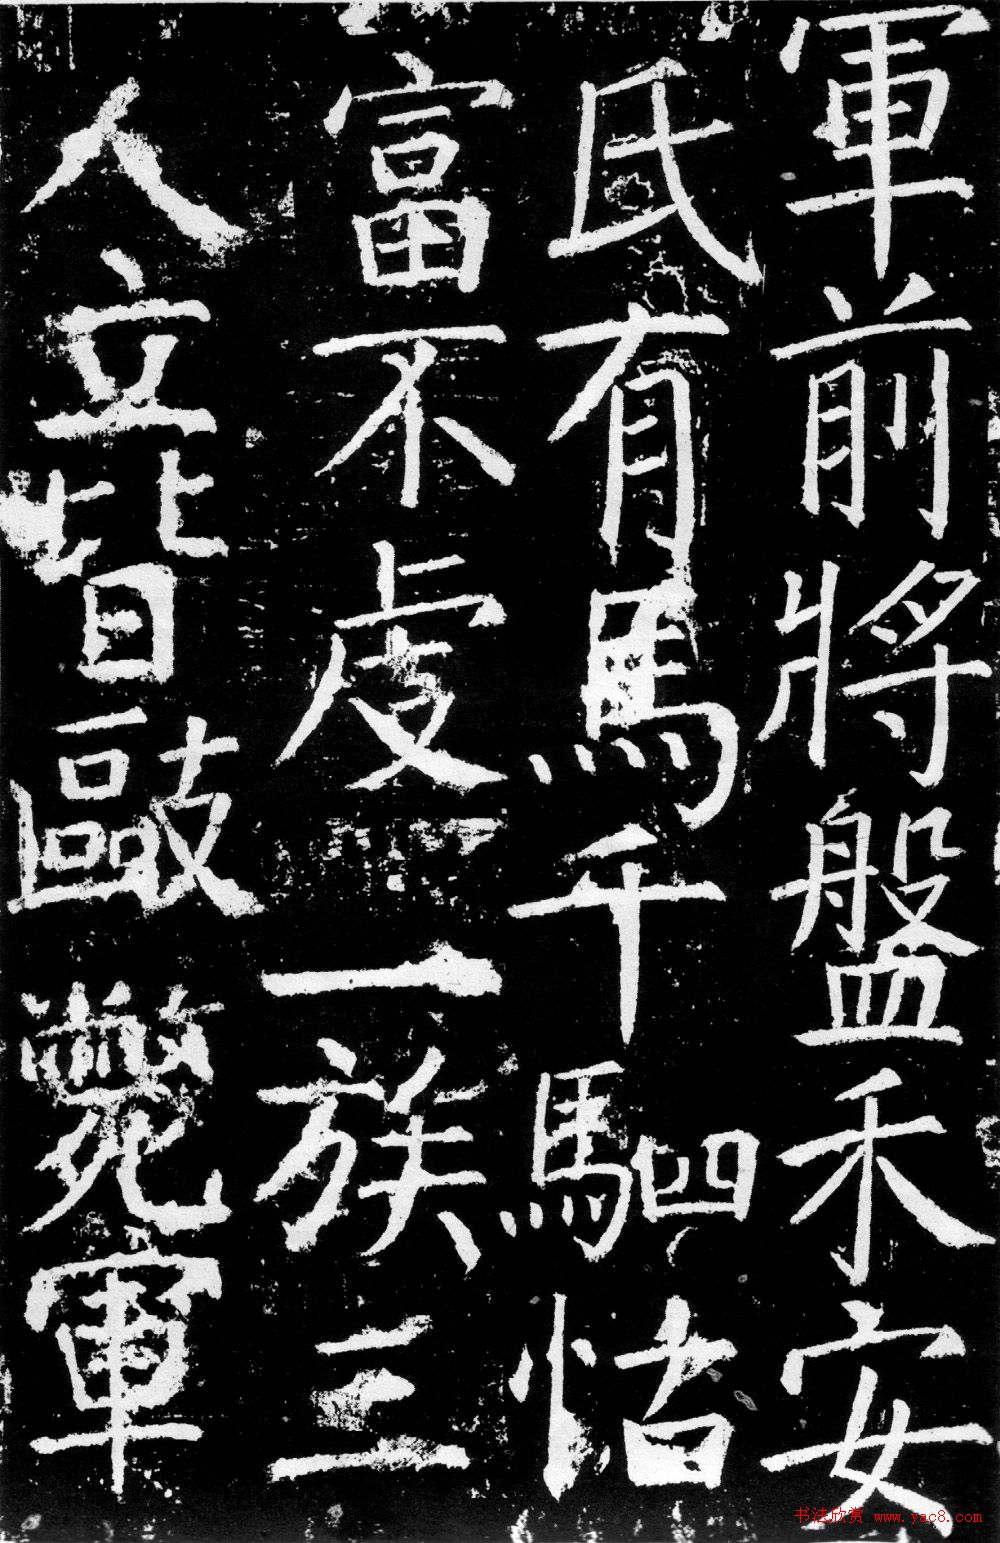 軍前將盤禾安
氏有馬千駟怙
富不虔一族三
人立皆敺斃軍
书法欣赏 www.yac8.com